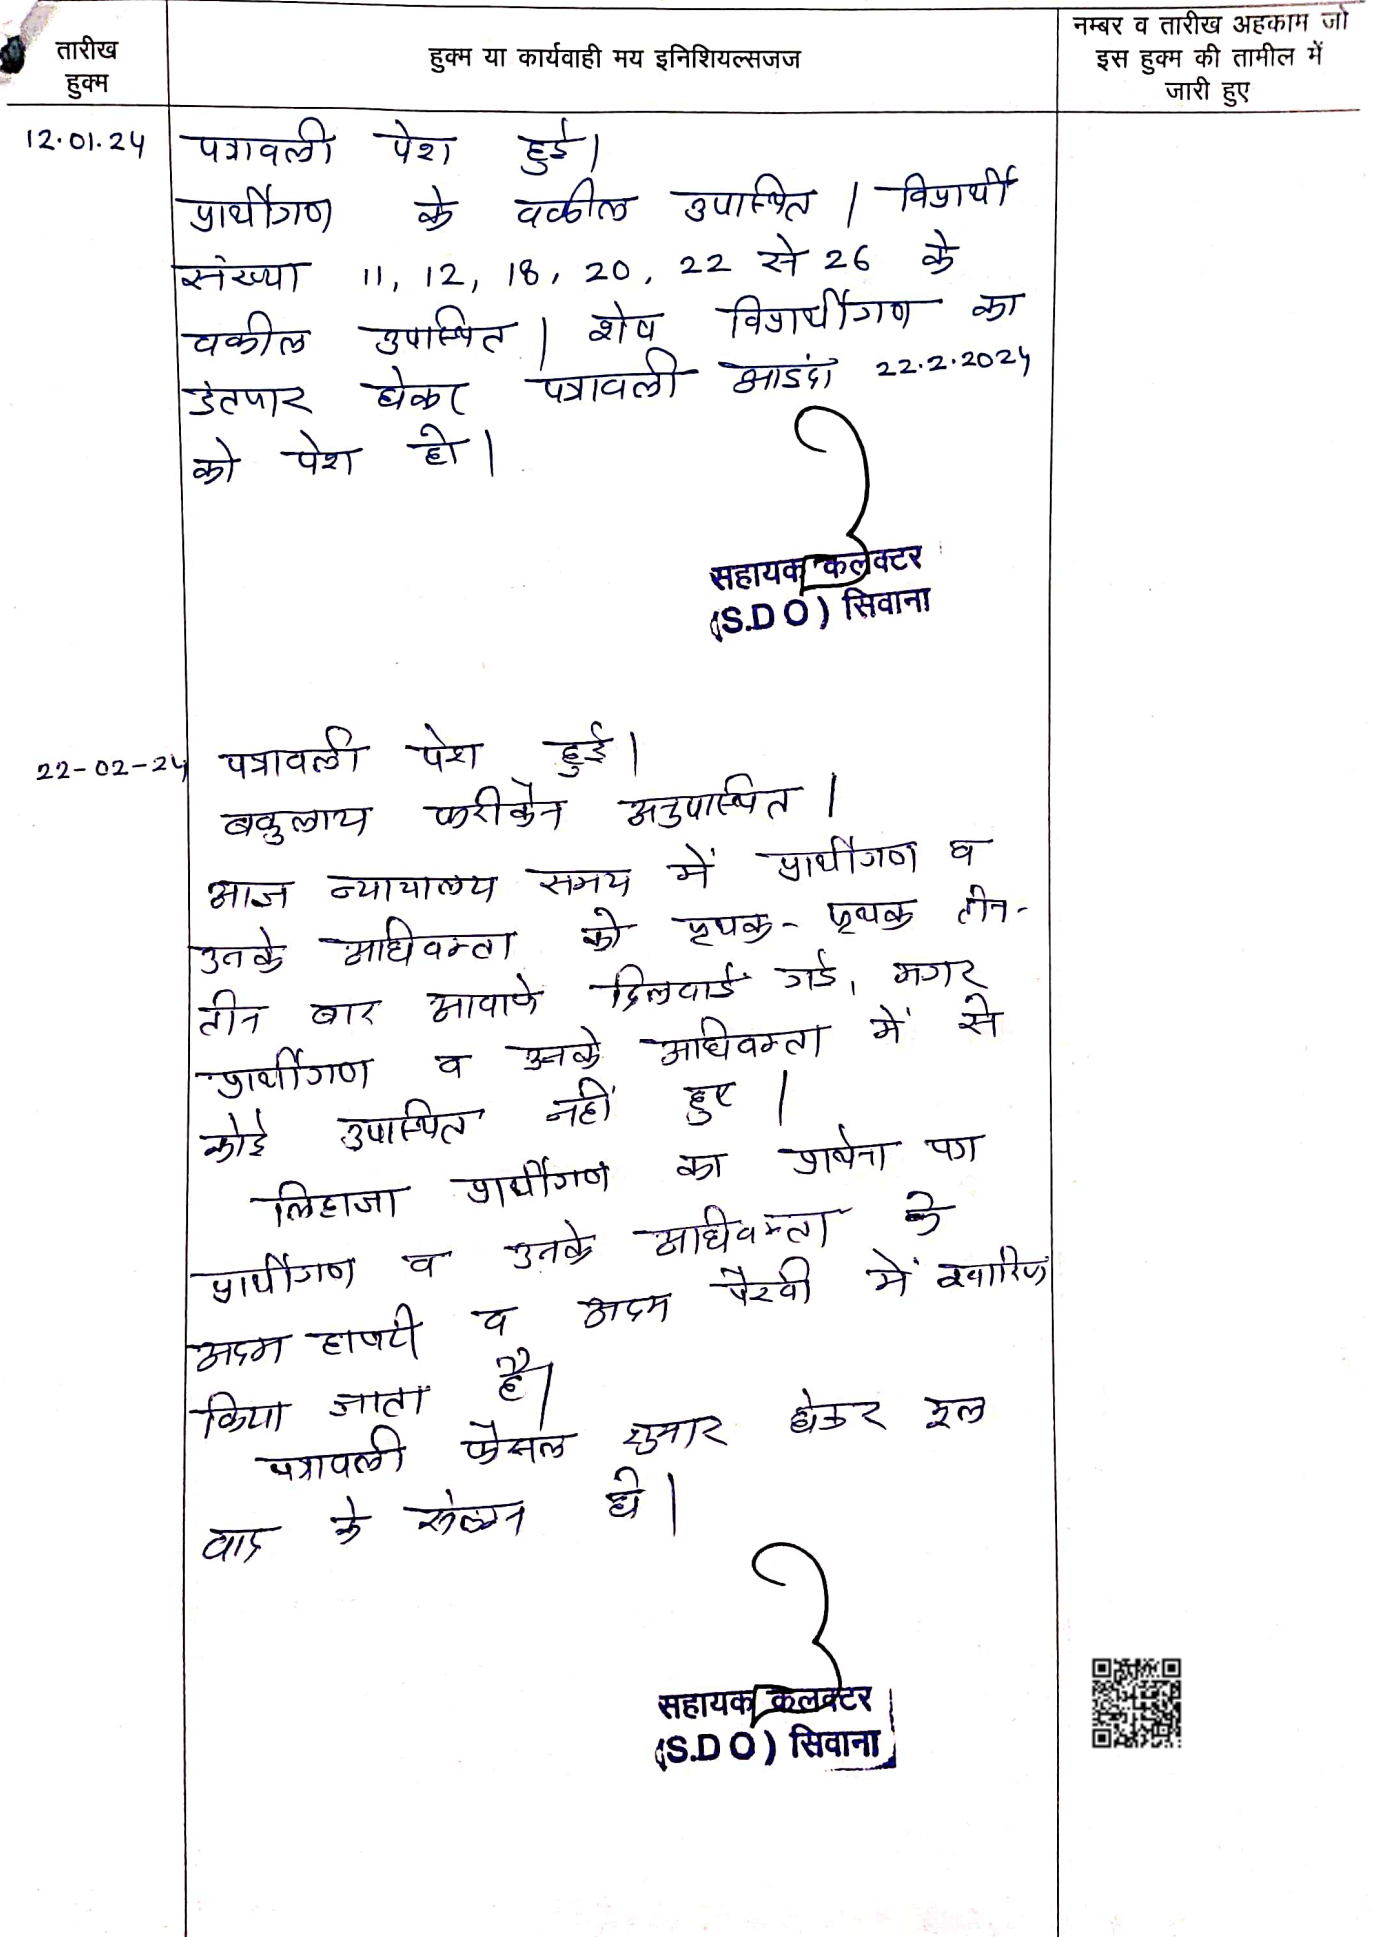 तारीख
हुक्म
हुक्म या कार्यवाही मय इनिशियल्सजज
नम्बर व तारीख अहकाम जो
इस हुक्म की तामील में
जारी हुए
12.01.24
पत्रावली पेश हुई।
प्रार्थीगण के वकील उपस्थित। विप्रार्थी
संख्या 11, 12, 18, 20, 22 से 26 के
वकील उपस्थित। शेष विप्रार्थीगण का
इंतजार होकर पत्रावली आइंदा 22.2.2024
को पेश हो।
सहायक कलेक्टर
(S.D O) सिवाना
22-02-24
पत्रावली पेश हुई।
वकुलाय फरीकेन अनुपस्थित।
आज न्यायालय समय में प्रार्थीगण व
उनके अधिवक्ता को पृथक-पृथक तीन-
तीन बार आवाजे दिलवाई गई, मगर
प्रार्थीगण व उनके अधिवक्ता में से
कोई उपस्थित नहीं हुए।
लिहाजा प्रार्थीगण का प्रार्थना पत्र
प्रार्थीगण व उनके अधिवक्ता के
अदम हाजरी व अदम पैरवी में खारिज
किया जाता है।
पत्रावली फैसल शुमार होकर मूल
वाद के संलग्न हो।
सहायक कलेक्टर
(S.D O) सिवाना